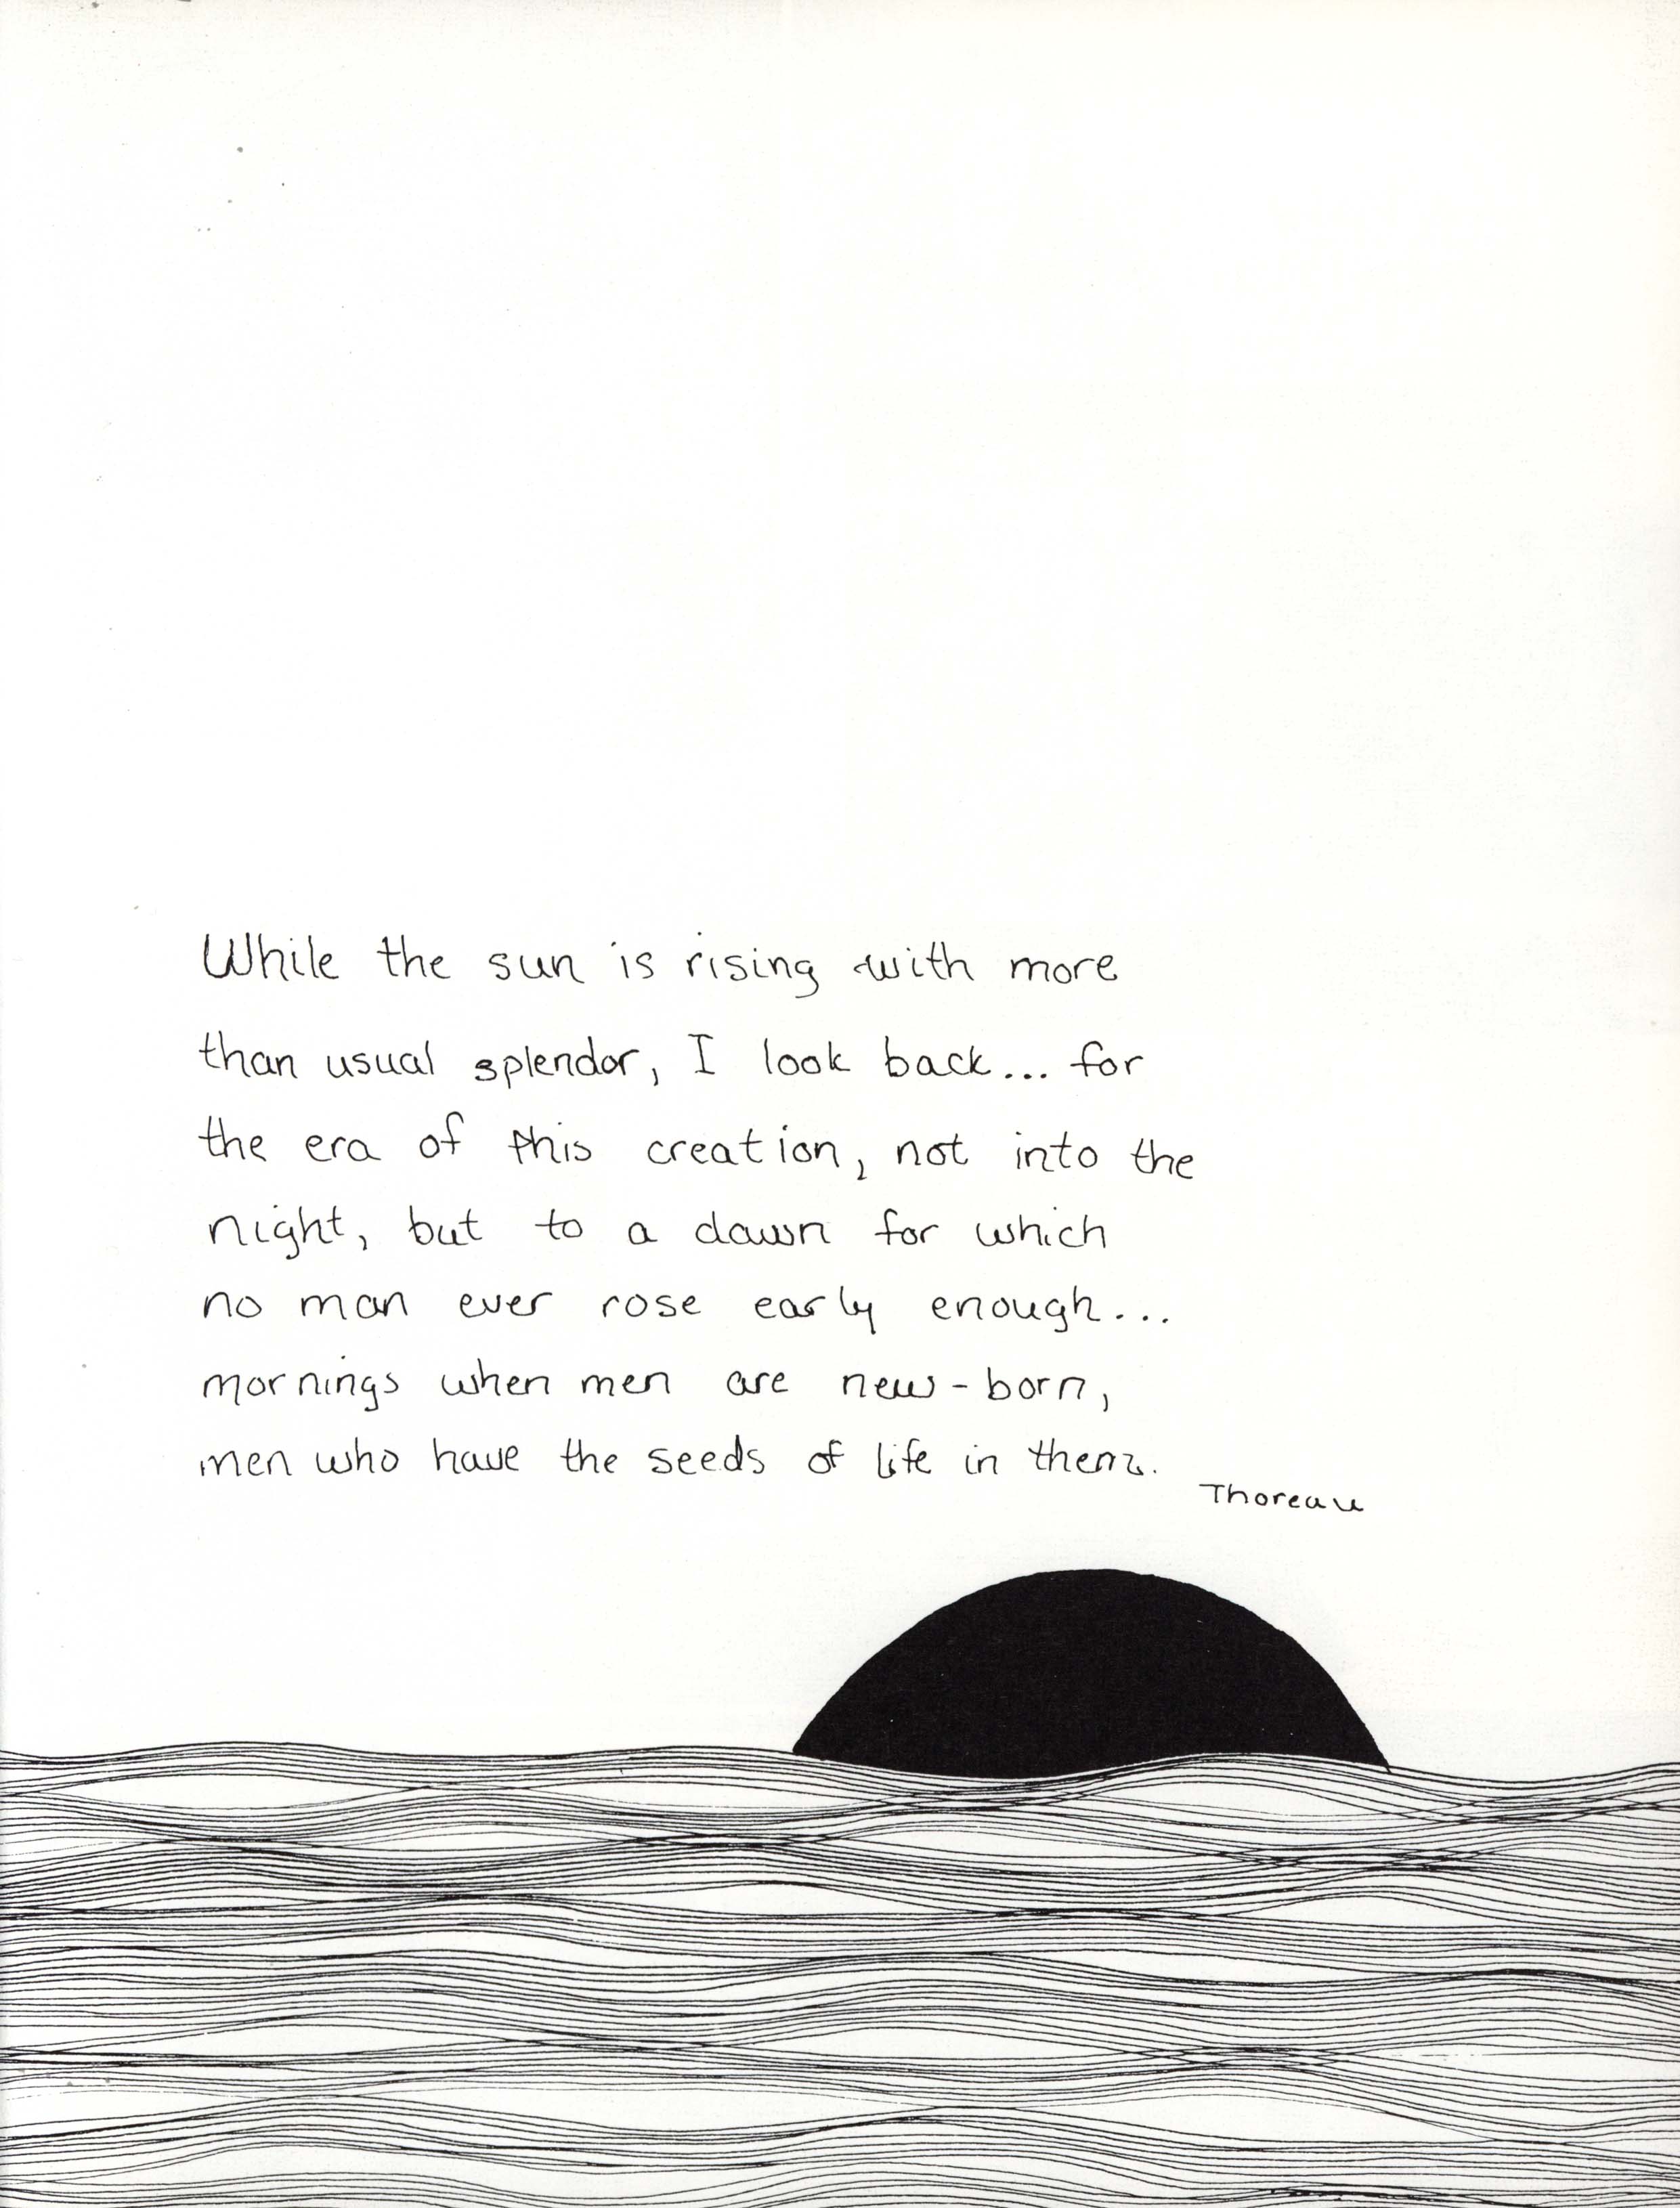 While the sun is rising with more
than usual splendor, I look back... for
the era of this creation, not into the
night, but to a dawn for which
no man ever rose early enough...
mornings when men are new-born,
men who have the seeds of life in them.
Thoreau